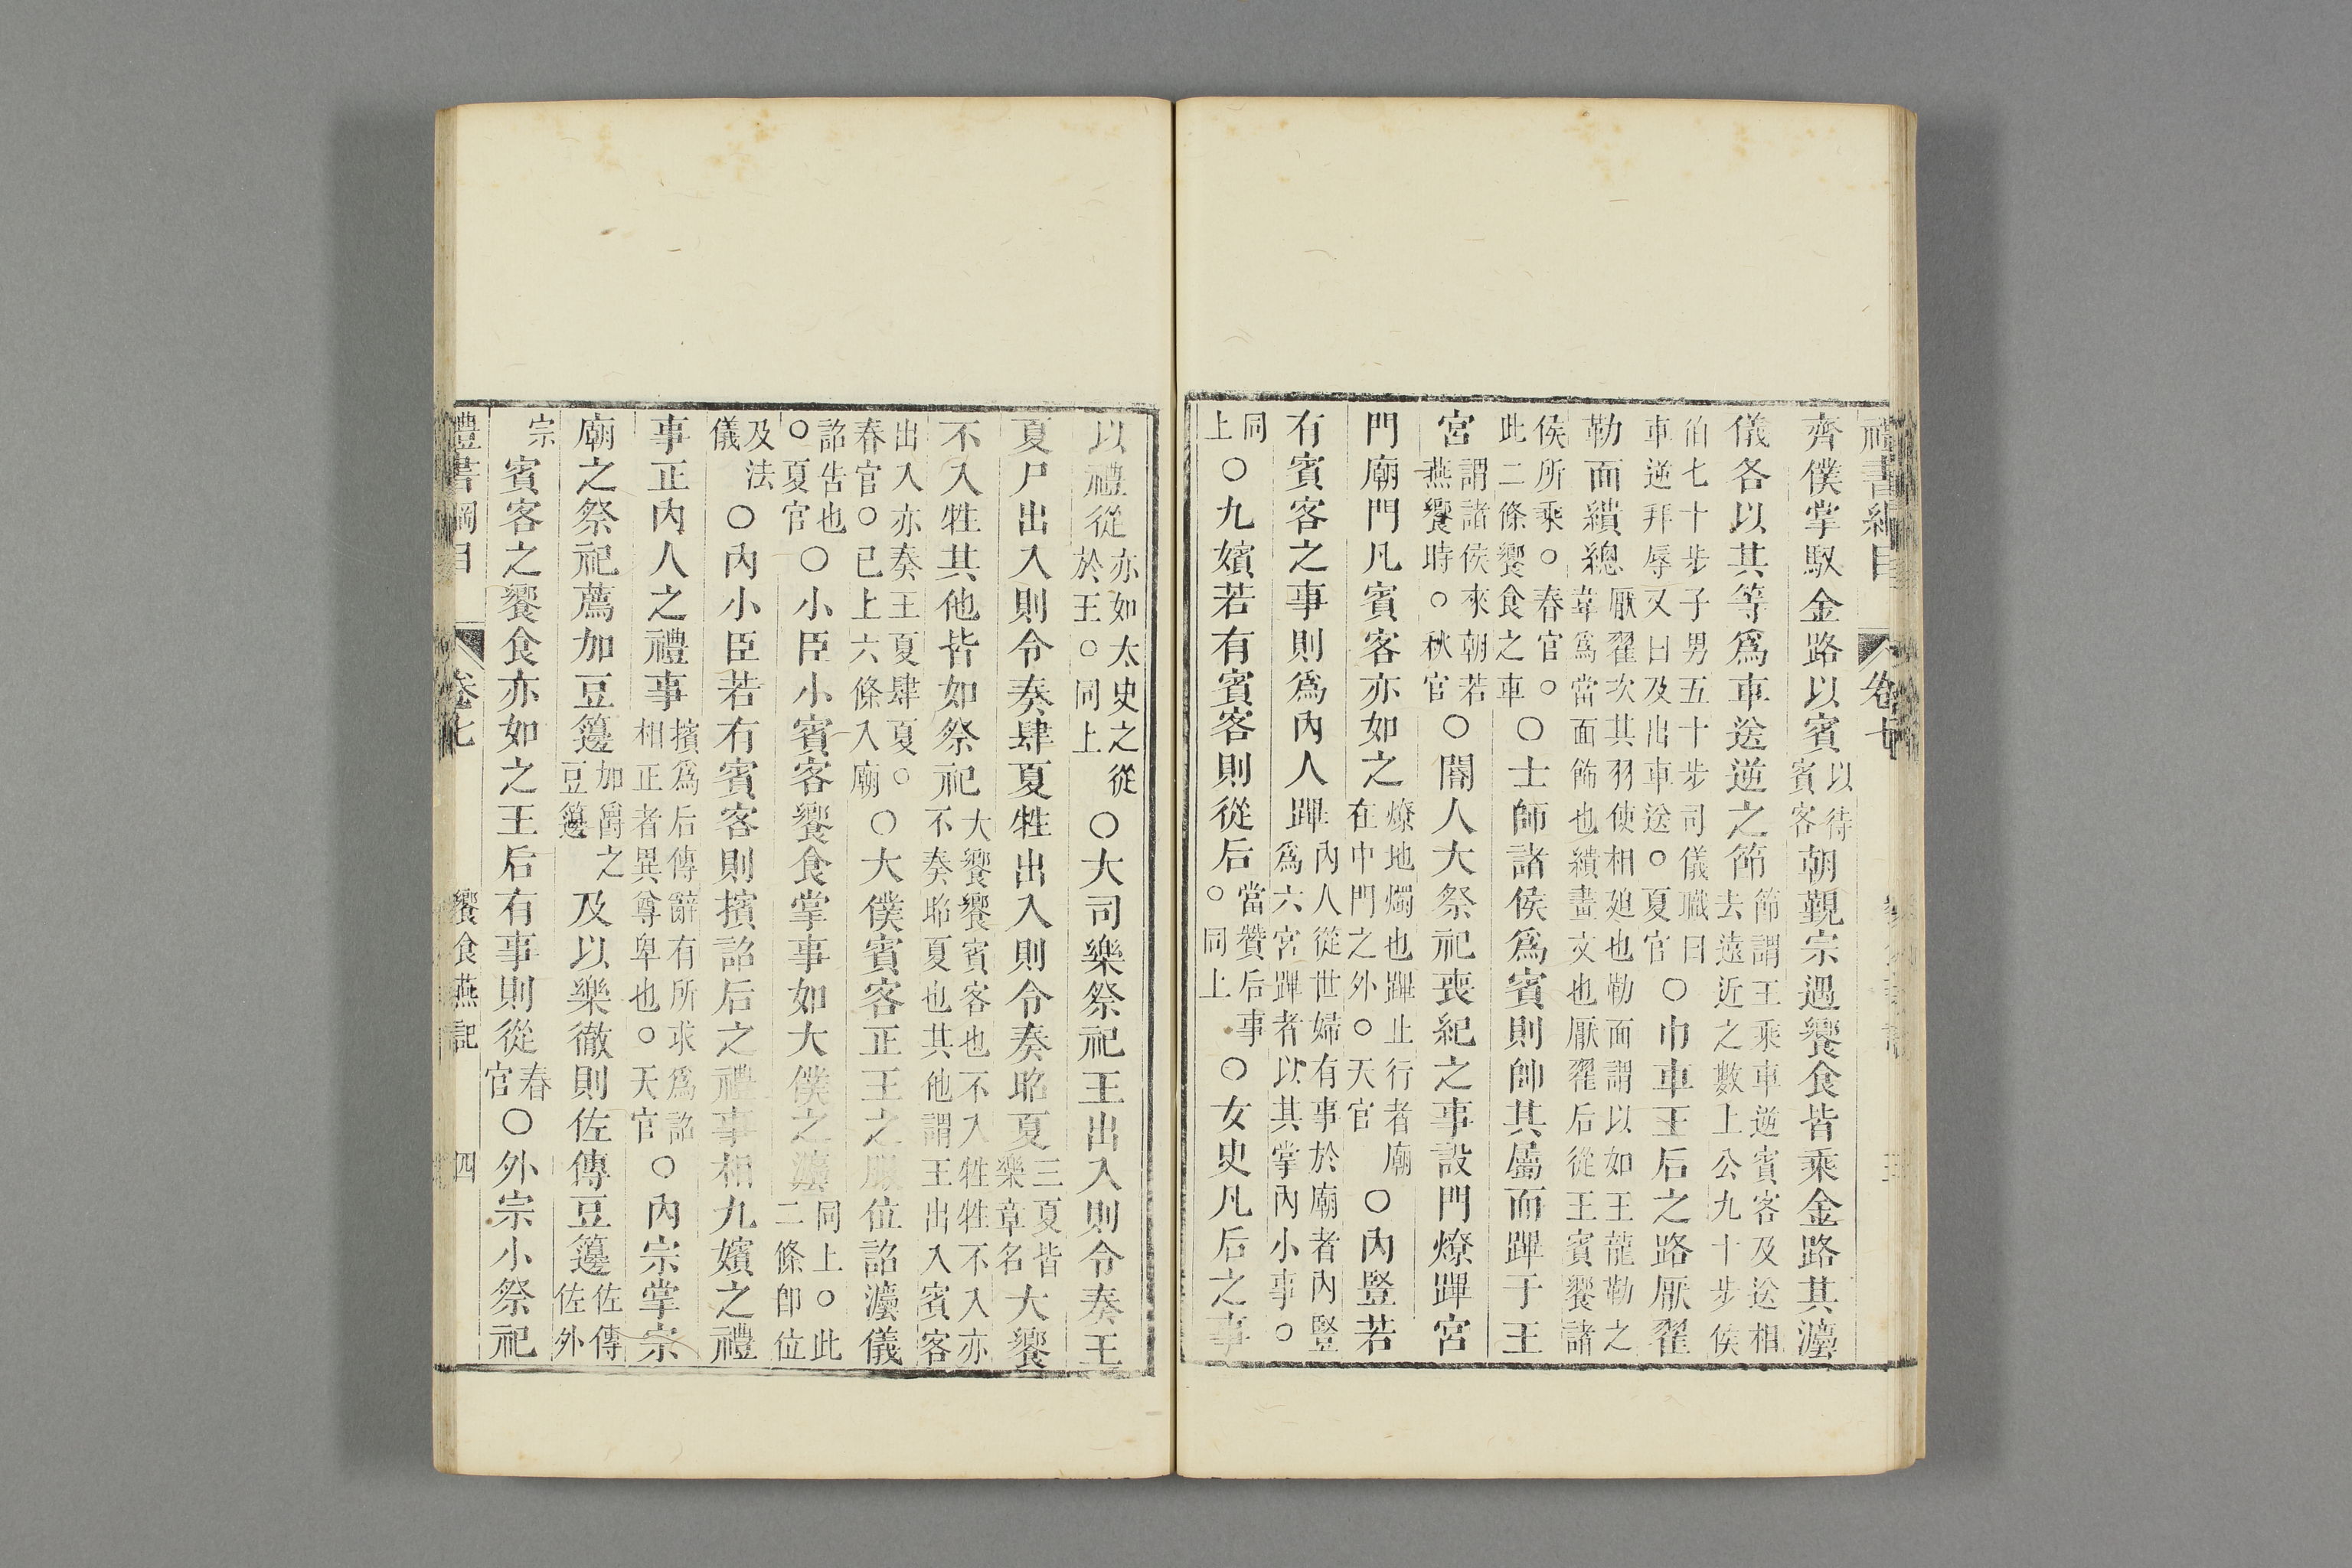 禮書綱目 卷七
齊僕掌馭金路以賓以待賓客朝覲宗遇饗食皆乘金路其灋
儀各以其等爲車送逆之節節謂王乘車逆賓客及送相去遠近之數上公九十步侯
伯七十步子男五十步司儀職曰車逆拜辱又曰及出車送。夏官〇巾車王后之路厭翟
勒面繢總厭翟次其羽使相廹也勒面謂以如王龍勒之韋爲當面飾也繢畫文也厭翟后從王賓饗諸
侯所乘。春官。此二條饗食之車〇士師諸侯爲賓則帥其屬而蹕于王
宮謂諸侯來朝若燕饗時。秋官〇閽人大祭祀喪紀之事設門燎蹕宮
門廟門凡賓客亦如之燎地燭也蹕止行者廟在中門之外。天官〇內豎若
有賓客之事則爲內人蹕內人從世婦有事於廟者內豎爲六宮蹕者以其掌內小事。
同上〇九嬪若有賓客則從后當贊后事。同上〇女史凡后之事
以禮從亦如太史之從於王。同上〇大司樂祭祀王出入則令奏王
夏尸出入則令奏肆夏牲出入則令奏昭夏三夏皆樂章名大饗
不入牲其他皆如祭祀大饗饗賓客也不入牲牲不入亦不奏昭夏也其他謂王出入賓客
出入亦奏王夏肆夏。春官。已上六條入廟〇大僕賓客正王之服位詔灋儀
詔告也。夏官〇小臣小賓客饗食掌事如大僕之灋同上。此二條卽位
及法儀〇內小臣若有賓客則擯詔后之禮事相九嬪之禮
事正內人之禮事擯爲后傳辭有所求爲詔相正者異尊卑也。天官〇內宗掌宗
廟之祭祀薦加豆籩加爵之豆籩及以樂徹則佐傳豆籩佐傳佐外
宗賓客之饗食亦如之王后有事則從春官〇外宗小祭祀
禮書綱目 卷七 饗食燕記 四